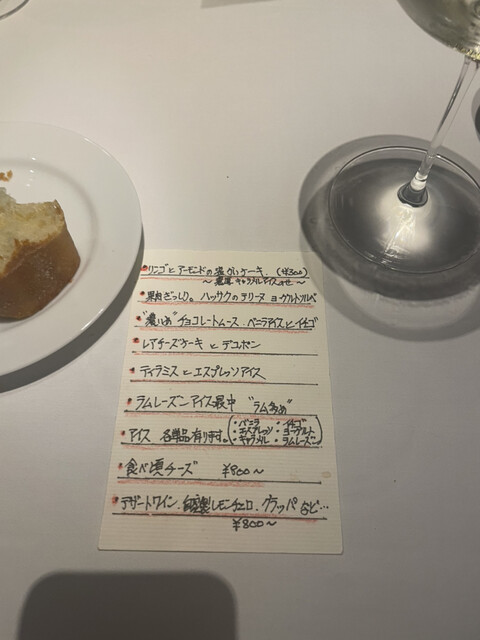 リンゴとアーモンドの温かいケーキ. (+¥300)
〜 キャラメルアイスのせ 〜
果肉ざっしり。ハッサクのテリーヌ ヨーグルトソルベ
"濃いめ" チョコレートムース バニラアイスとイチゴ
レアチーズケーキ と デコポン
ティラミス と エスプレッソアイス
ラムレーズンアイス最中 "ラム多め"
アイス 各単品有ります。
・バニラ ・イチゴ
・エスプレッソ ・ヨーグルト
・キャラメル ・ラムレーズン
食べ頃チーズ ¥900〜
デザートワイン. 自家製レモンチェロ. グラッパ など…
¥800〜